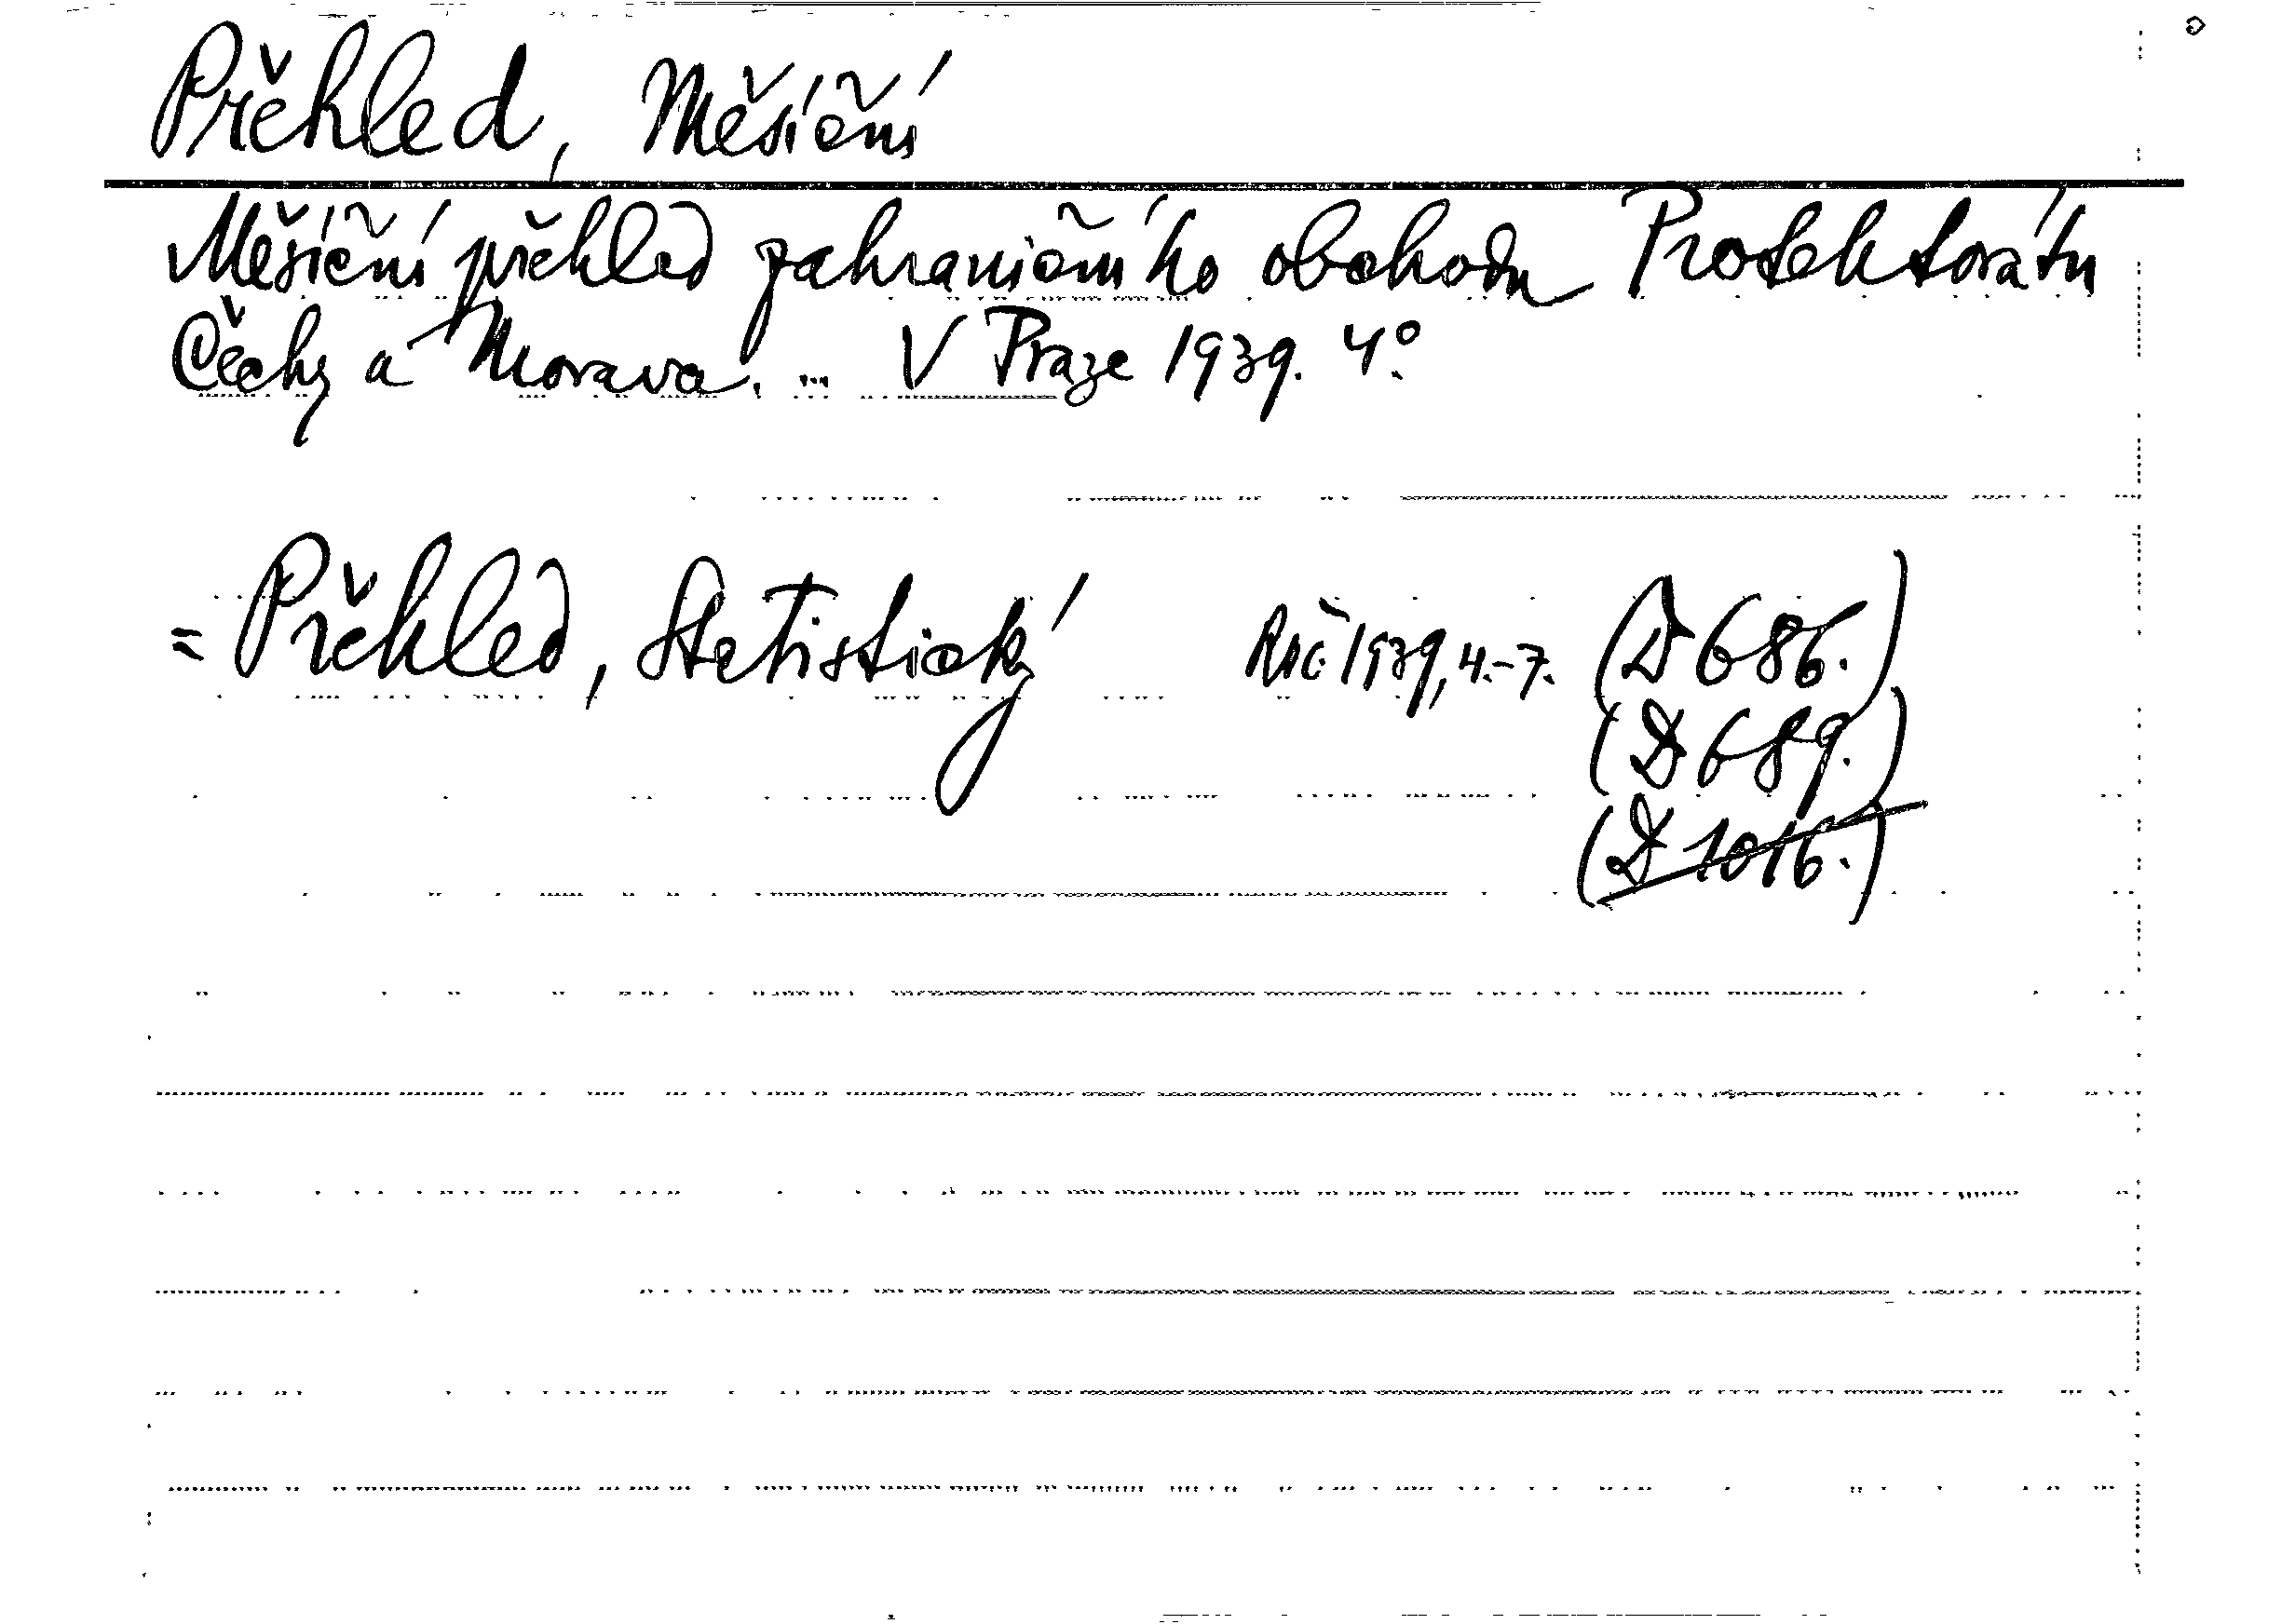 Přehled, Měsíční
Měsíční přehled zahraničního obchodu Protektorátu
Čechy a Morava. ... V Praze 1939. 4°.
= Přehled, Statistický Roč. 1939, 4.-7. (D 686.)
(D 689.)
(D 1016.)